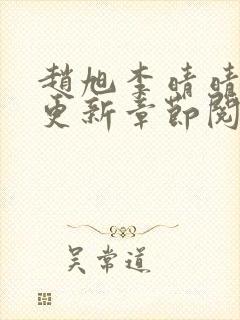 趙旭李晴晴
更新章節閱
吴常道